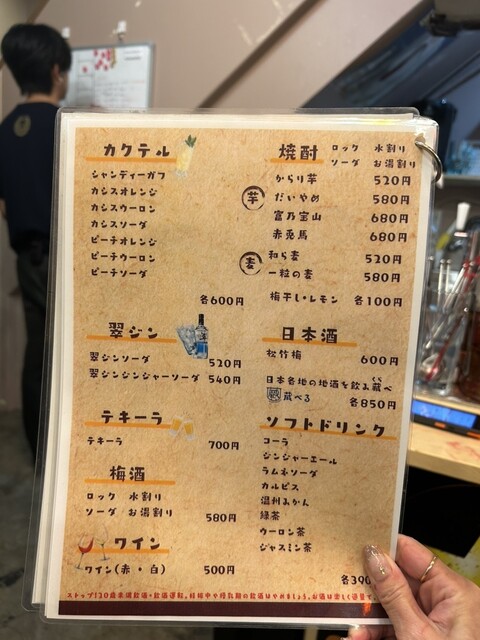 カクテル
シャンディーガフ
カシスオレンジ
カシスウーロン
カシスソーダ
ピーチオレンジ
ピーチウーロン
ピーチソーダ
各600円
翠ジン
翠ジンソーダ 520円
翠ジンジンジャーソーダ 540円
テキーラ
テキーラ 700円
梅酒
ロック 水割り
ソーダ お湯割り 580円
ワイン
ワイン(赤・白) 500円
焼酎 ロック 水割り
ソーダ お湯割り
芋
からり芋 520円
だいやめ 580円
富乃宝山 680円
赤兎馬 680円
麦
和ら麦 520円
一粒の麦 580円
梅干し・レモン 各100円
日本酒
松竹梅 600円
日本各地の地酒を飲み蔵べ
くら
蔵べる 各850円
ソフトドリンク
コーラ
ジンジャーエール
ラムネソーダ
カルピス
温州みかん
緑茶
ウーロン茶
ジャスミン茶
各390
ストップ!20歳未満飲酒・飲酒運転。妊娠中や授乳期の飲酒はやめましょう。お酒は楽しく適量で